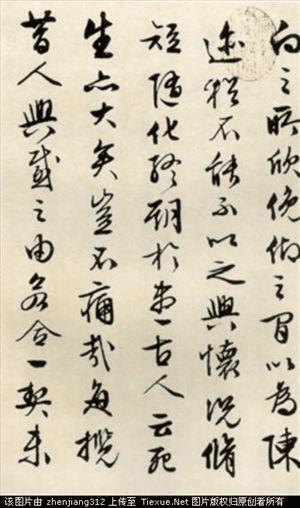 向之所欣俛仰之間以為陳
迹猶不能不以之興懷況脩
短隨化終期於盡古人云死
生亦大矣豈不痛哉每攬
昔人興感之由若合一契未
该图片由 zhenjiang312 上传至 Tiexue.Net 图片版权归原创者所有